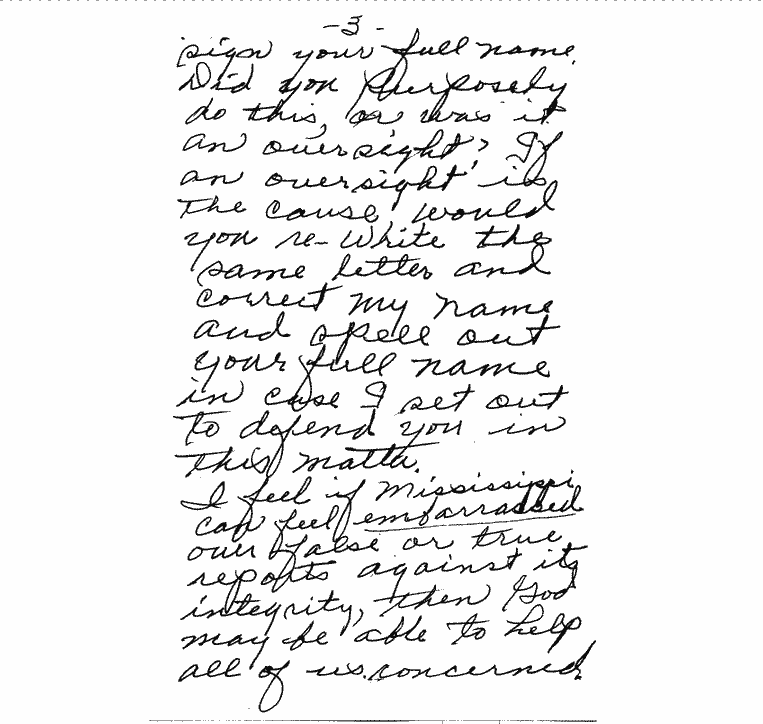 -3-
sign your full name.
Did you purposely
do this, or was it
an oversight? If
an oversight is
the cause, would
you re-write the
same letter and
correct my name
and spell out
your full name
in case I set out
to defend you in
this matta.
I feel if Mississippi
can feel embarrassed
over false or true
reports against its
integrity, then God
may be able to help
all of us concerned.